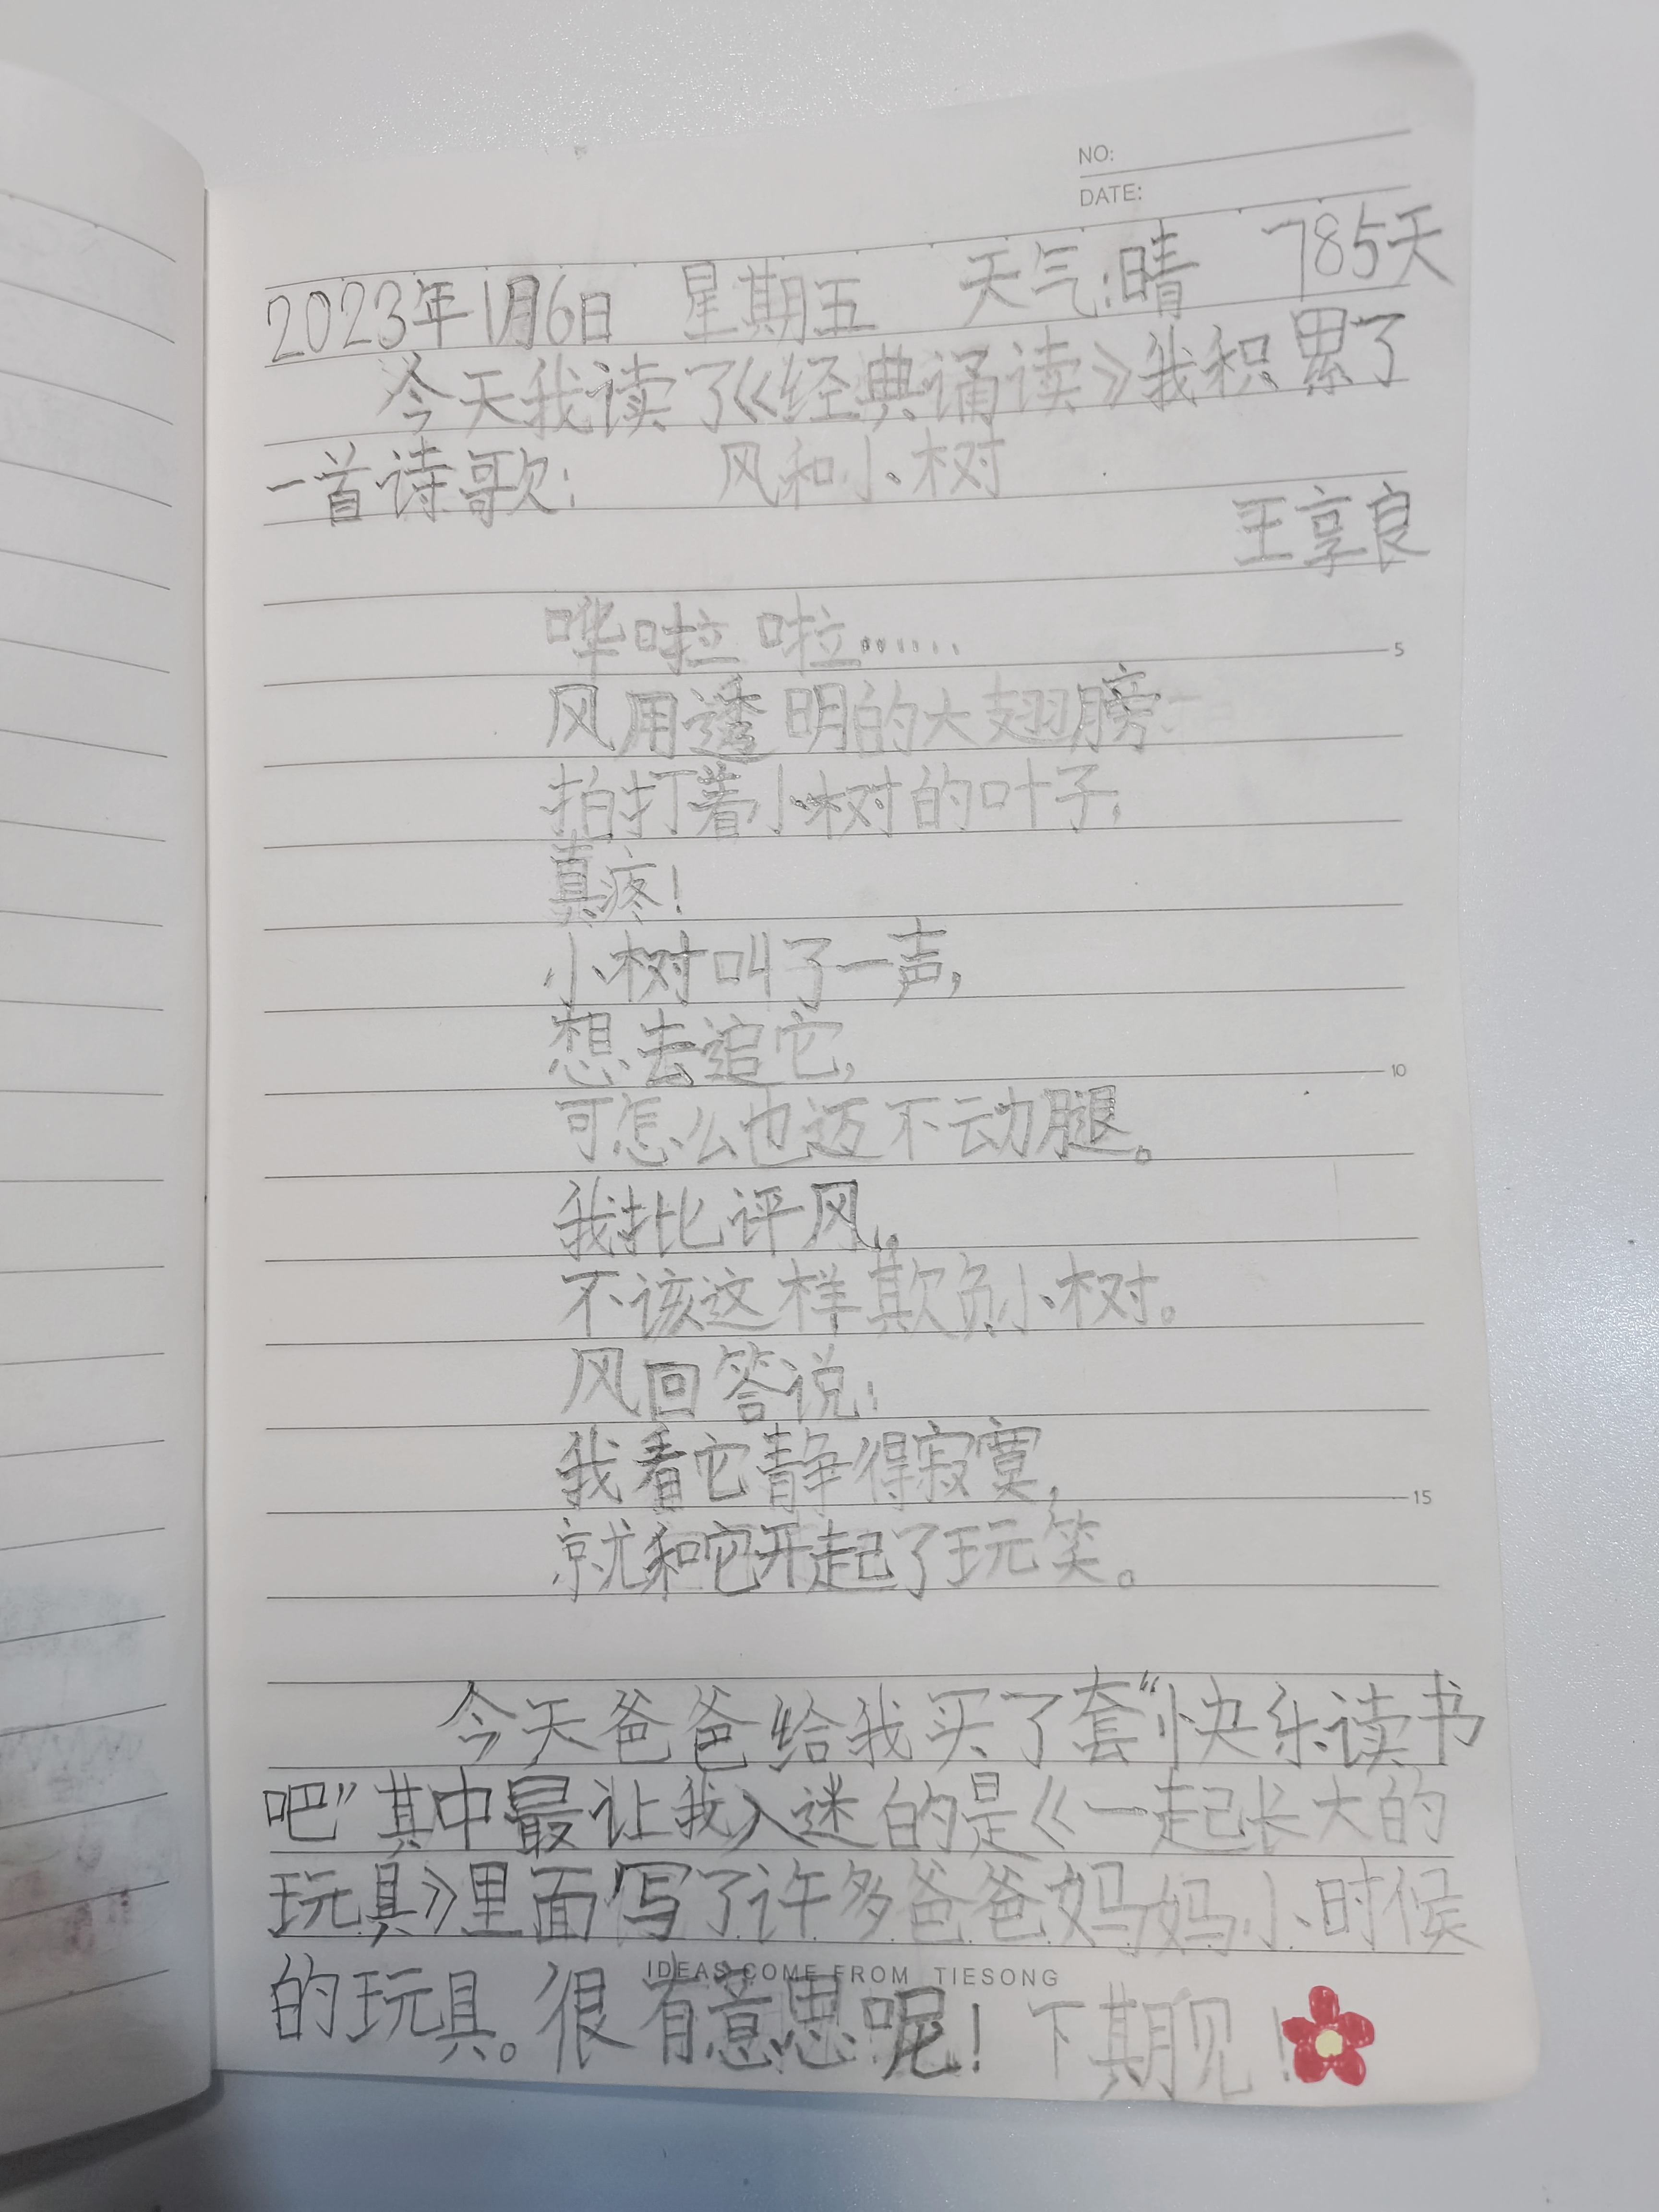 NO:
DATE:
2023年1月6日 星期五 天气:晴 785天
今天我读了《经典诵读》我积累了
一首诗歌: 风和小树
王享良
哗啦啦……
风用透明的大翅膀
拍打着小树的叶子,
真疼!
小树叫了一声,
5
想去追它,
10
可怎么也迈不动腿。
我批评风,
不该这样欺负小树。
风回答说:
我看它静得寂寞,
15
就和它开起了玩笑。
今天爸爸给我买了套“快乐读书
吧”其中最让我入迷的是《一起长大的
玩具》里面写了许多爸爸妈妈小时候
IDEAS COME FROM TIESONG
的玩具。很有意思呢!下期见!